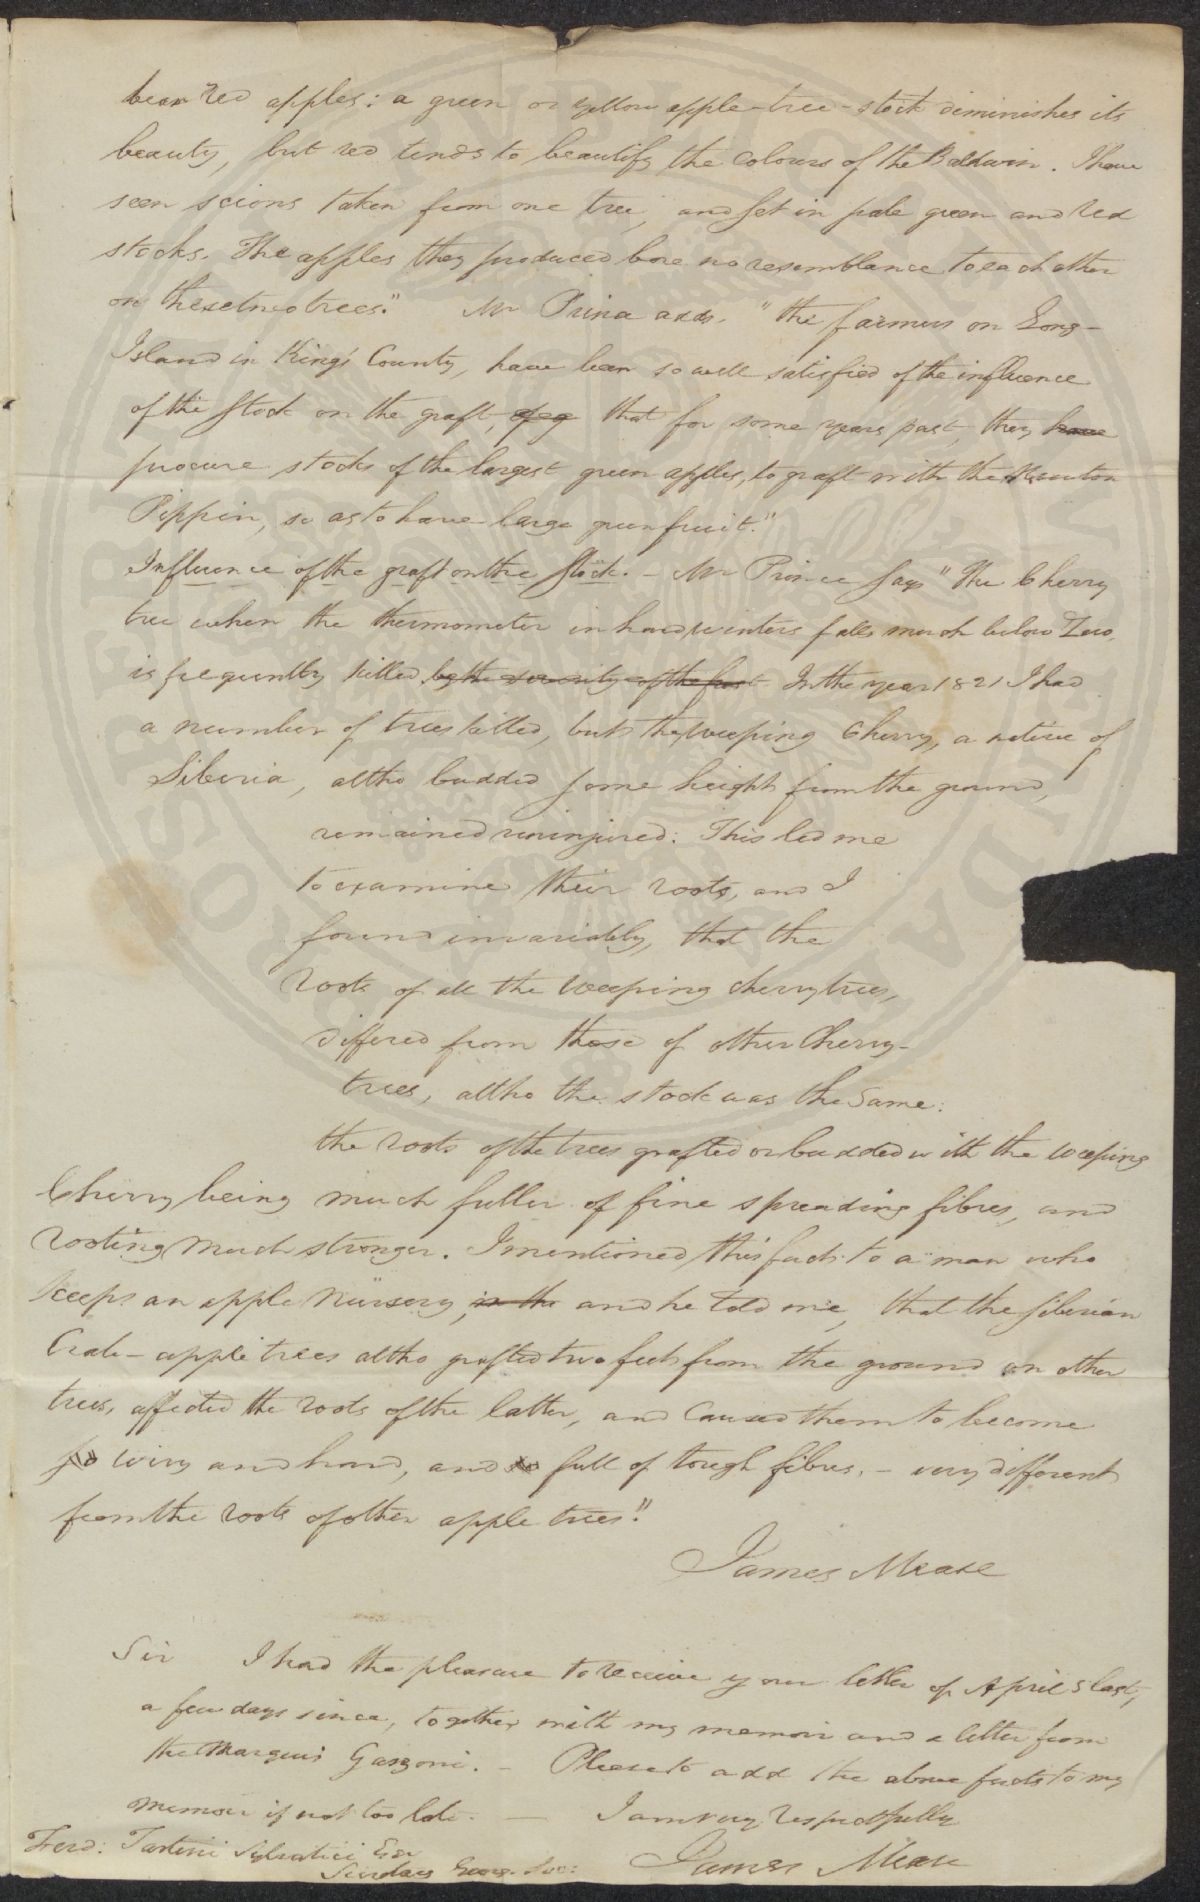 bear red apples: a green or yellow apple-tree-stock diminishes its
beauty, but red tends to beautify the colours of the Baldwin. I have
seen scions taken from one tree, and set in pale green and red
stocks. The apples they produced bore no resemblance to each other
on these two trees." Mr Prince adds, "the farmers on Long-
Island in King's County, have been so well satisfied of the influence
of the stock on the graft, that for some years past, they have
procure stocks of the largest green apples, to graft with the Newton
Pippin, so as to have large green fruit."
Influence of the graft on the Stock. - Mr Prince says "The Cherry
tree when the thermometer in hard winters falls much below Zero,
is frequently killed by the severity of the frost. In the year 1821 I had
a number of trees killed, but the weeping Cherry, a native of
Siberia, altho budded some height from the ground,
remained uninjured: This led me
to examine their roots, and I
found invariably, that the
roots of all the weeping cherry trees,
differed from those of other Cherry-
trees, altho the stock was the same:
the roots of the trees grafted or budded with the weeping
Cherry being much fuller of fine spreading fibres, and
rooting much stronger. I mentioned this fact to a man who
keeps an apple nursery, in the and he told me, that the Siberian
Crab-apple trees altho grafted two feet from the ground on other
trees, affected the roots of the latter, and caused them to become
so wiry and hard, and so full of tough fibres, - very different
from the roots of other apple trees."
James Mease
Sir I had the pleasure to receive your letter of April 5 last,
a few days since, together with my memoir and a letter from
the Marquis Garzoni. - Please to add the above facts to my
memoir if not too late. - I am very respectfully
Ferd: Tartini Salvatici Esqr
James Mease